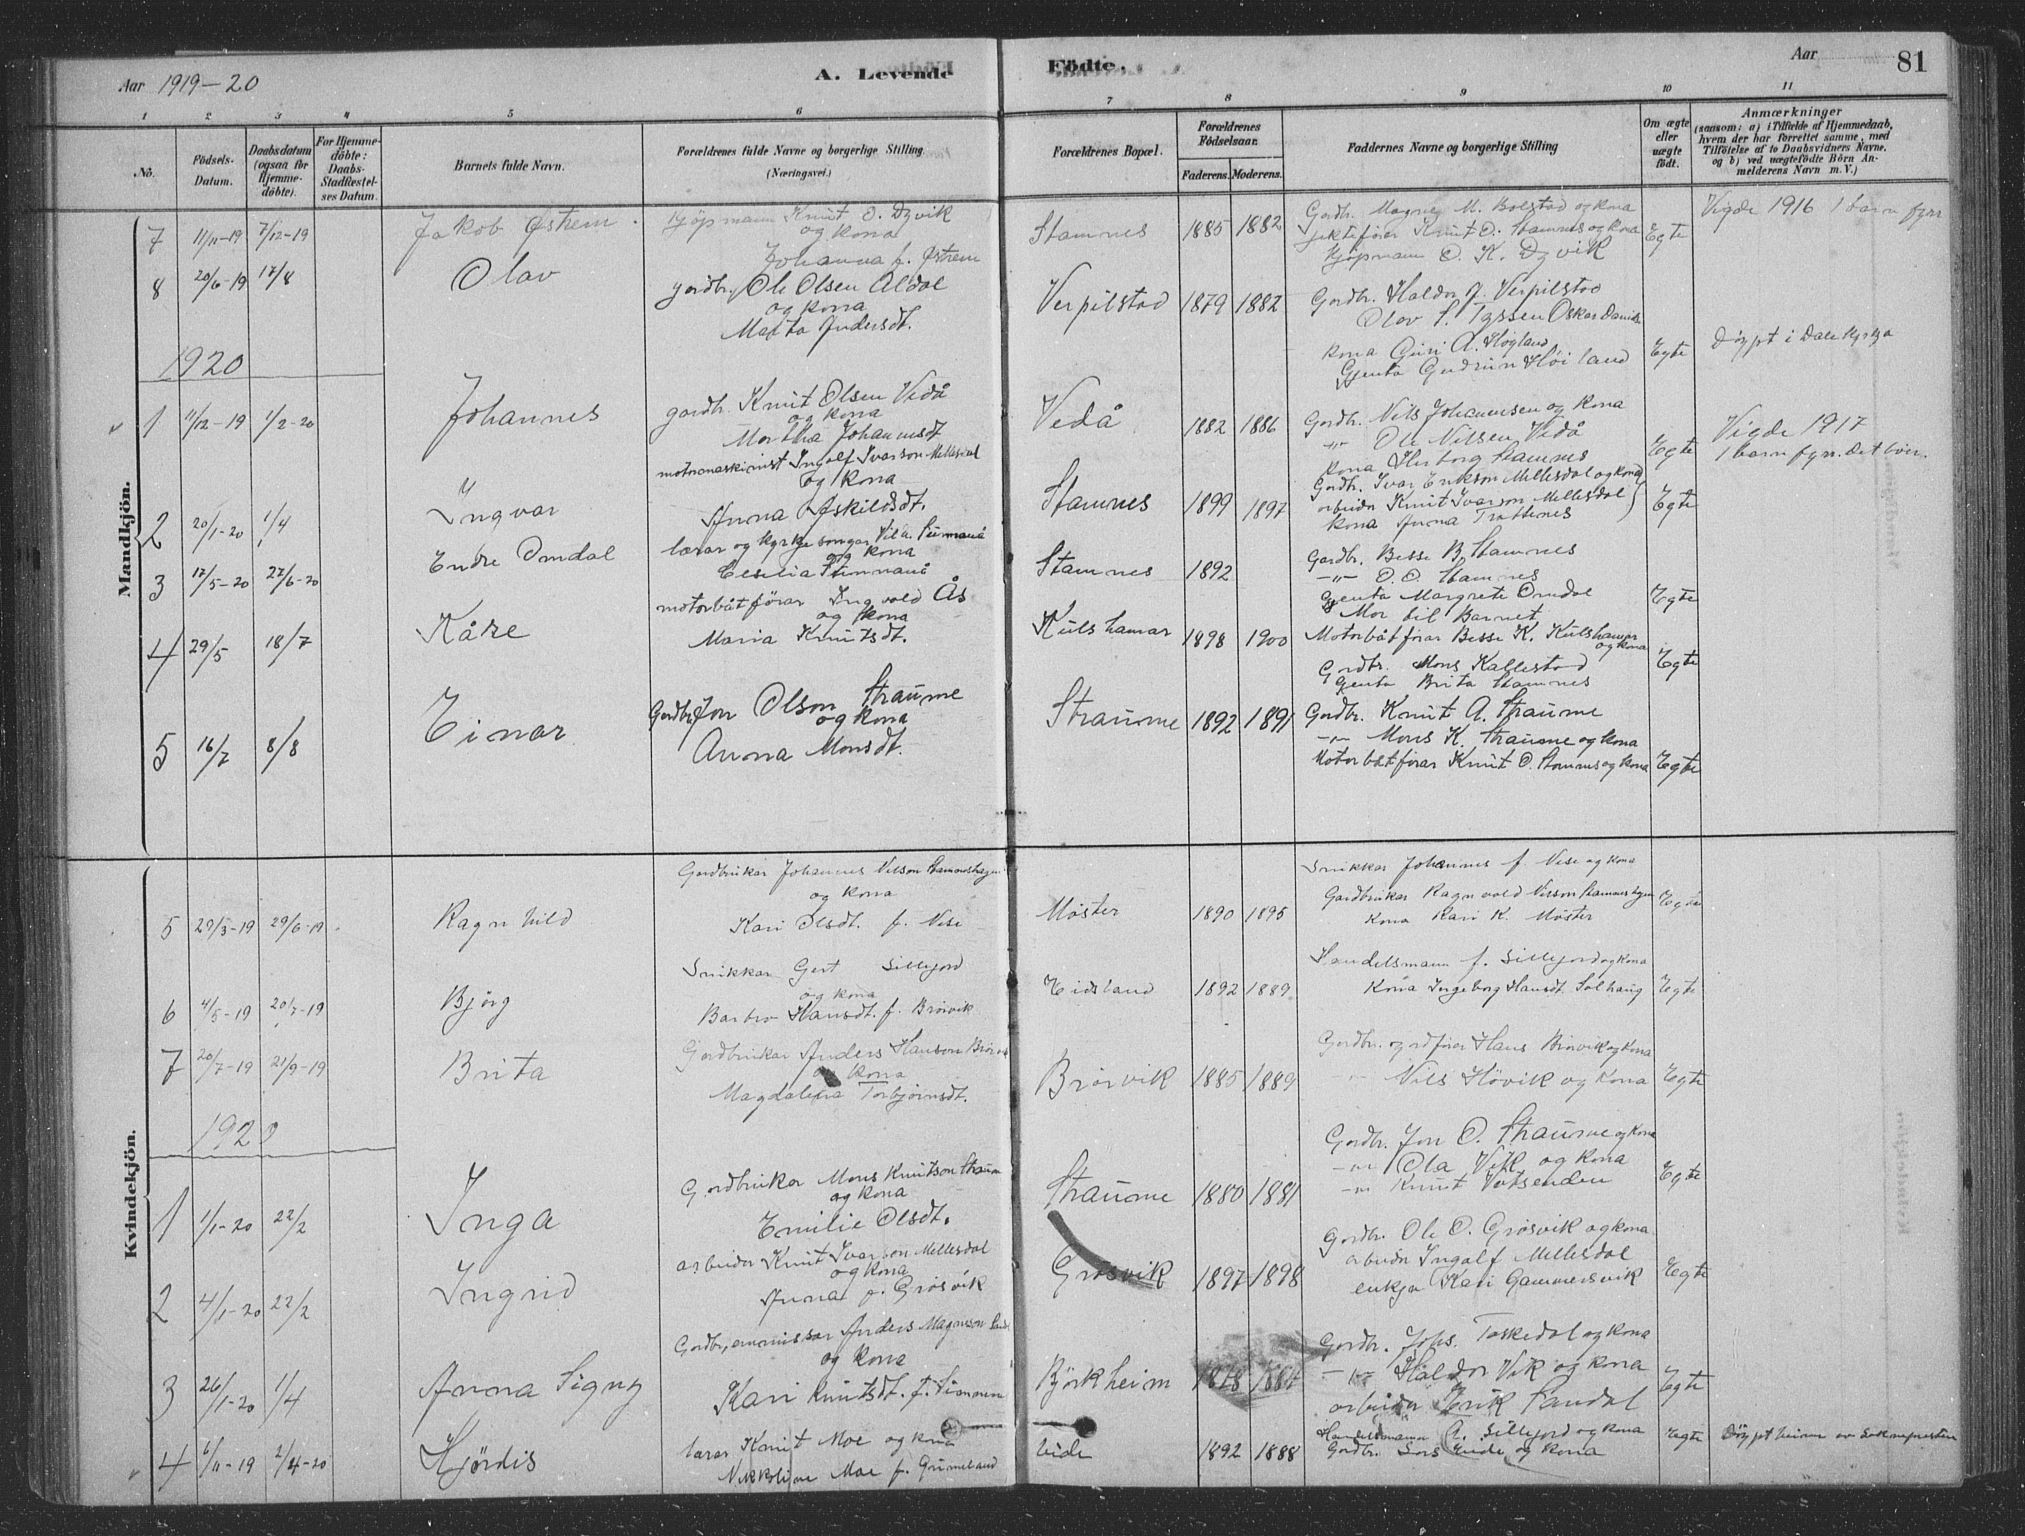 Aar 1919-20
A. Levende
Födte.
Aar
81
1 2 3 4 5 6 7 8 9 10 11
No.
Födsels-Datum.
Daabsdatum (ogsaa for Hjemme-döbte).
For Hjemme-döbte: Daabs-Stadfæstel-ses Datum.
Barnets fulde Navn.
Forældrenes fulde Navne og borgerlige Stilling
(Næringsvei.)
Forældrenes Bopæl.
Forældrenes Födselsaar.
Faderens. Moderens.
Faddernes Navne og borgerlige Stilling
Om ægte eller uægte födt.
Anmærkninger
(saasom: a) i Tilfælde af Hjemmedaab,
hvem der har forrettet samme, med
Tilföielse af to Daabsvidners Navne.
og b) ved uægtefödte Börn An-
melderens Navn m. V.)
Mandkjön.
7 11/11-19 7/12-19 Jakob Østrem.
Kjöpmann Knut O. Dyvik
og kona
Johanna f. Østrem
Stamnes 1885 1882
Gordbr. Magne M. Bolstad og kona
jektefører Knut O. Stamnes og kona
Kjöpmann O. K. Dyvik
Egte
Vigde 1916 1 barn fyrr
8 20/6-19 17/8 Olav
gordbr. Ole Olsen Aldal
og kona
Marta Andersdt.
Verpilstad 1879 1882
Gordbr. Haldor J. Verpilstad
Olav S. Tyssen Oskar
kona Guri A. Högland
Gjenta Gudrun Höiland
Egte
Döypt i Dale kyrkja
1920
1 11/12-19 1/2-20 Johannes
gordbr. Knut Olsen Vedå
og kona
Martha Johannesdt
Vedå 1882 1886
Gordbr. Nils Johannesen og kona
-"- Ole Nilsen Vedå
kona Herborg Stamnes
Egte
Vigde 1917
1 barn fyrr. det liver.
2 20/1-20 1/4 Ingvar
motormaskinist Ingolf Ivarson Millesdal
og kona
Anna Askildsdt.
Stamnes 1899 1897
Gordbr. Ivar Erikson Millesdal og kona
arbeider Knut Ivarson Millesdal
kona Anna Trottenes
Egte
3 17/5-20 27/6-20 Endre Omdal
lærar og kyrkjesongar
og kona
Cesilia
Stamnes 1892
Gordbr. Besse B. Stamnes
-"- O. O. Stamnes
Gjenta Margrete Omdal
Mor til Barnet
Egte
4 29/5 18/7 Kåre
motorbåtförar Ingvald Ås
og kona
Maria Knutsdt.
Kulshamar 1898 1900
Motorbåtförar Besse K. Kulshamar
og kona
Gordbr. Mons Kallestad
Gjenta Brita Stamnes
Egte
5 16/7 8/8 Einar
Gordbr. Jon Olson Straume
og kona
Anna Monsdt.
Straume 1892 1891
Gordbr. Knut A. Straume
-"- Mons K. Straume og kona
Motorbåtförar Knut O. Stamnes og kona
Egte
Kvindekjön.
5 29/3-19 29/6-19 Ragnhild
Gardbrukar Johannes Nilson Stamneshagen
og kona
Kari Olsdt. f. Vese
Möster 1890 1895
Snikkar Johannes f. Vese og kona
Gardbrukar Ragnvald Nilson Stamneshagen
Kona Kari K. Möster
Egte
6 4/5-19 20/7-19 Björg
Snikkar Gert Sillejord
og kona
Barbro Hansdt. f. Brörvik
Eidsland 1892 1889
Handelsmann f. Sillejord og kona
Kona Ingeborg Hansdt. Solhaug
Egte
7 20/7-19 21/9-19 Brita
Gordbrukar Anders Hanson
og kona
Magdalena Torbjörnsdt.
Brörvik 1885 1889
Gordbr. og ordförer Hans Brörvik og kona
-"- Nils Hövik og kona
Egte
1920
1 1/1-20 22/2 Inga
Gordbrukar Mons Knutson Straume
og kona
Emilie Olsdt.
Straume 1880 1881
Gordbr. Jon O. Straume og kona
-"- Ola Vik og kona
-"- Knut Votsenden
Egte
2 4/1-20 22/2 Ingrid
arbeider Knut Ivarson Millesdal
og kona
Anna f. Grösvik
Grösvik 1897 1898
Gordbr. Ole O. Grösvik og kona
arbeider Ingolf Millesdal
enkja Kari Gammersvik
Egte
3 26/1-20 1/4 Anna Signy
Gordbr, emmissær Anders Magnson
og kona
Kari Knutsdt. f.
Björkheim 1878 1887
Gordbr. Johs. Taskedal og kona
-"- Haldor Vik og kona
arbeider Erik Sandal
Egte
4 6/11-19 2/4-20 Hjördis
lærar Knut Moe og kona
Nikkoline Moe f. Grimeland
Eide 1892 1888
Handelsmann A. Sillejord og kona
Gordbr. Lars Eide og kona
Egte
Döypt heime av Soknepresten